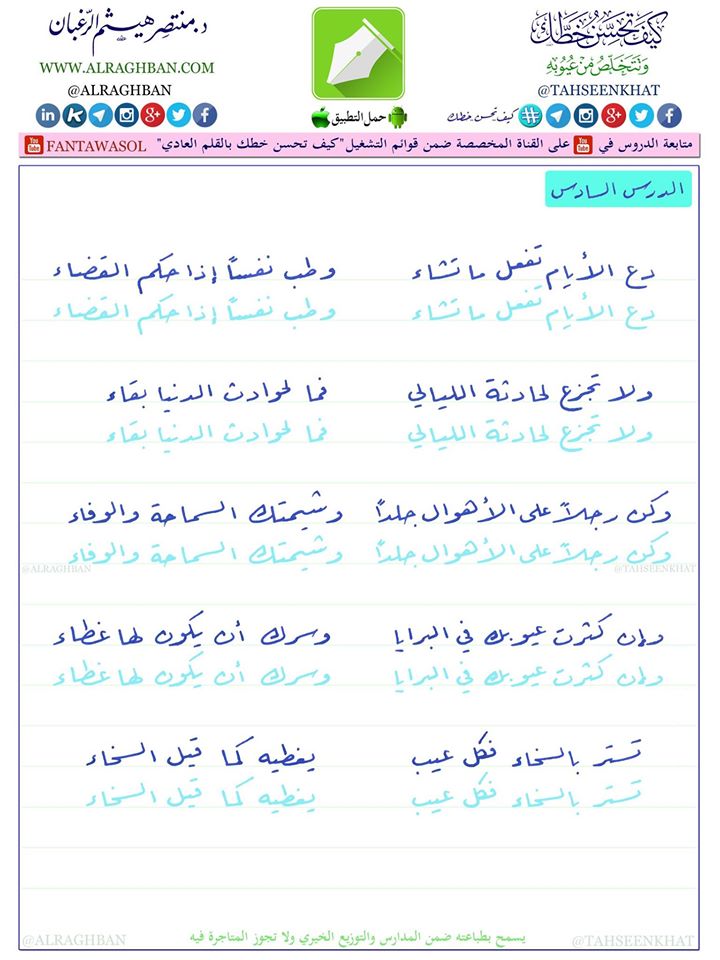 كيف تحسن خطك
ونتخلص من عيوبه
@TAHSEENKHAT
كيف تحسن خطك
حمل التطبيق
د. منتصر هيثم الرغبان
WWW.ALRAGHBAN.COM
@ALRAGHBAN
متابعة الدروس في YouTube على القناة المخصصة ضمن قوائم التشغيل "كيف تحسن خطك بالقلم العادي" YouTube FANTAWASOL
الدرس السادس
دع الأيام تفعل ما تشاء وطب نفساً إذا حكم القضاء
دع الأيام تفعل ما تشاء وطب نفساً إذا حكم القضاء
ولا تجزع لحادثة الليالي فما لحوادث الدنيا بقاء
ولا تجزع لحادثة الليالي فما لحوادث الدنيا بقاء
وكن رجلاً على الأهوال جلداً وشيمتك السماحة والوفاء
وكن رجلاً على الأهوال جلداً وشيمتك السماحة والوفاء
@TAHSEENKHAT @ALRAGHBAN
وإن كثرت عيوبك في البرايا وسرك أن يكون لها غطاء
وإن كثرت عيوبك في البرايا وسرك أن يكون لها غطاء
تستر بالسخاء فكل عيب يغطيه كما قيل السخاء
تستر بالسخاء فكل عيب يغطيه كما قيل السخاء
@TAHSEENKHAT يسمح بطباعته ضمن المدارس والتوزيع الخيري ولا تجوز المتاجرة فيه @ALRAGHBAN